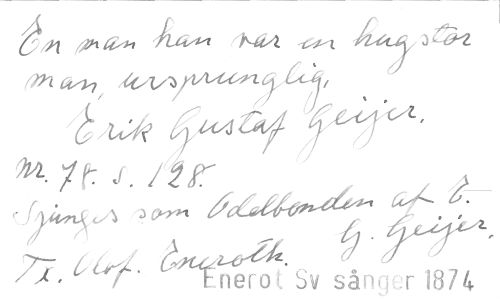 En man han var en hugstor
man, ursprunglig,
Erik Gustaf Geijer.
nr. 78. s. 128.
Sjunges som Odalbonden af E.
G. Geijer.
Tr. Olof. Eneroth.
Enerot Sv sånger 1874